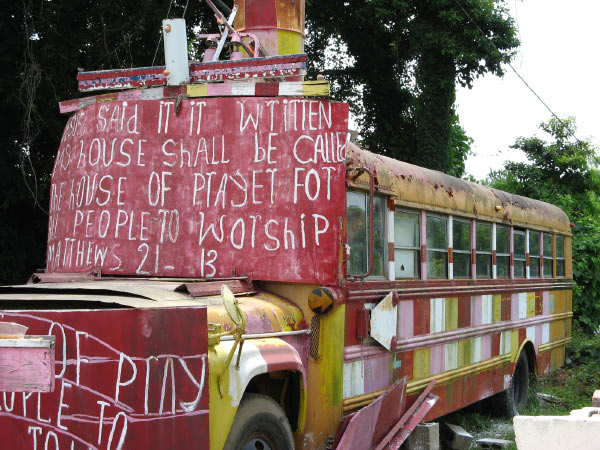 SAid IT IT WTiTTEN
HOUSE SHALL BE CALLEd
THE HOUSE OF PTAYET FOT
PEOPLE TO WOTSHiP
MATTHEWS 21 - 13
OF PTAY
PEOPLE TO